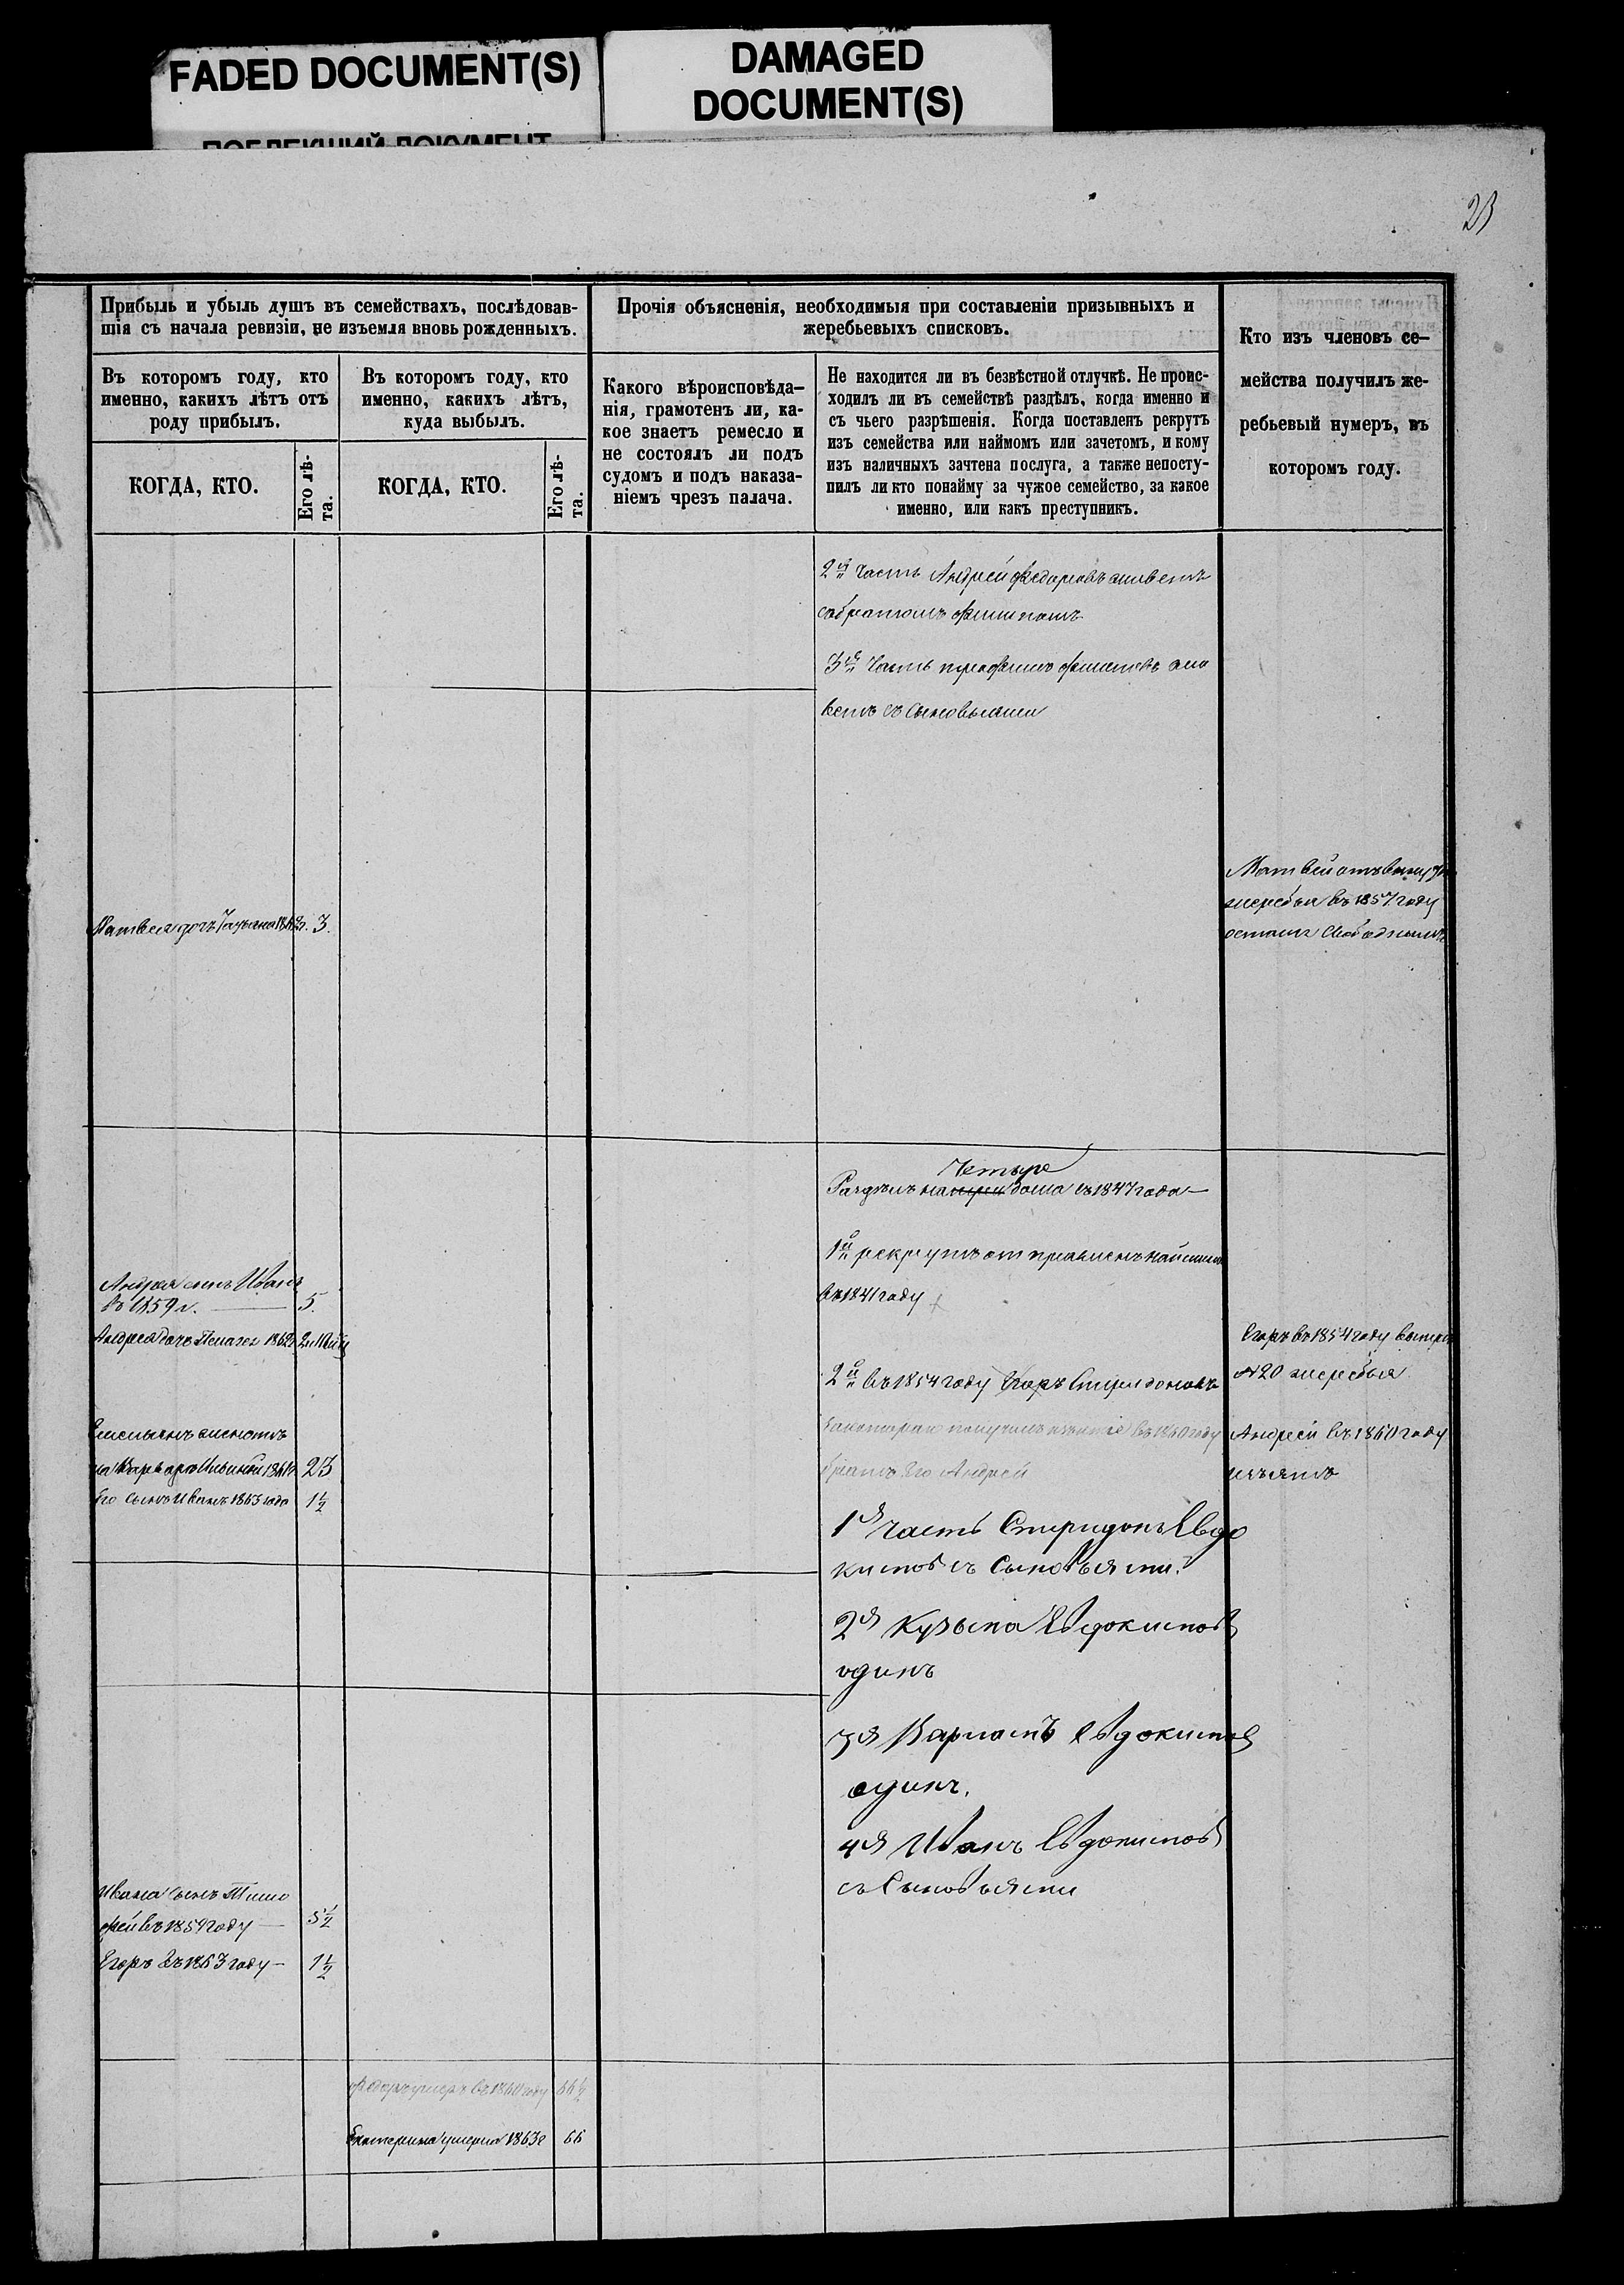 FADED DOCUMENT(S)
DAMAGED
DOCUMENT(S)
ПОБЛЕКШИЙ ДОКУМЕНТ
23
Прибыль и убыль душъ въ семействахъ, послѣдовав-
шія съ начала ревизіи, не изъемля вновь рожденныхъ.
Въ которомъ году, кто
именно, какихъ лѣтъ отъ
роду прибылъ.
КОГДА, КТО.
Его лѣ-
та.
Въ которомъ году, кто
именно, какихъ лѣтъ,
куда выбылъ.
КОГДА, КТО.
Его лѣ-
та.
Прочія объясненія, необходимыя при составленіи призывныхъ и
жеребьевыхъ списковъ.
Какого вѣроисповѣда-
нія, грамотенъ ли, ка-
кое знаетъ ремесло и
не состоялъ ли подъ
судомъ и подъ наказа-
ніемъ чрезъ палача.
Не находится ли въ безвѣстной отлучкѣ. Не проис-
ходилъ ли въ семействѣ раздѣлъ, когда именно и
съ чьего разрѣшенія. Когда поставленъ рекрутъ
изъ семейства или наймомъ или зачетомъ, и кому
изъ наличныхъ зачтена послуга, а также непосту-
пилъ ли кто понайму за чужое семейство, за какое
именно, или какъ преступникъ.
Кто изъ членовъ се-
мейства получилъ же-
ребьевый нумеръ, въ
которомъ году.
2я часть Андрей Федоровъ живетъ
собратомъ Филипомъ
3я часть живетъ
съ сыновьями
Матвей
жеребья въ 1857 году
остался свободнымъ
Матвея дочь Татьяна 1862г. 3.
Четыре
Раздѣлъ на дома съ 1847 года —
1й рекрутъ отправленъ наймомъ
въ 1841 году
Андрея сынъ Иванъ
въ 1859 г. — 5.
Андрея дочь Пелагея 1862г.
Егоръ въ 1854 году
№20 жеребья
2й въ 1854 году Егоръ Спиридоновъ
закотораго получилъ изъятіе въ 1860 году
братъ его Андрей
Андрей въ 1860 году
изъятъ
Емельянъ женатъ
на Варваре Ильиной 1861г. 23
Его сынъ Иванъ 1863 года 1½
1я часть Спиридонъ Евдо
кимовъ съ сыновьями.
2я Кузьма Евдокимовъ
одинъ
3я Варламъ Евдокимовъ
одинъ.
4я Иванъ Евдокимовъ
съ Сыновьями
Ивана сынъ Тимо
фей въ 1859 году — 5½
Егоръ въ 1863 году — 1½
Федоръ умеръ въ 1860 году 66½
Екатерина умерла 1863г 66